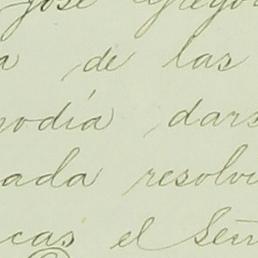 José Gregor
a de las
podía dars
ada resolvi
cas el Señ